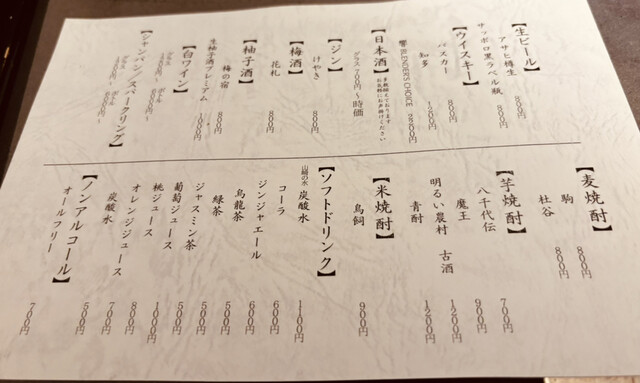 【生ビール】
アサヒ樽生 800円
サッポロ黒ラベル瓶 800円
【ウイスキー】
バスカー 800円
知多 1200円
響BLENDER'S CHOICE 2800円
【日本酒】多数揃えております
お気軽にお声掛けください
グラス 700円〜時価
【ジン】
けやき 800円
【梅酒】
花札 800円
【柚子酒】
梅の宿 800円
生柚子酒プレミアム 1000円
【白ワイン】
グラス ボトル
【シャンパン/スパークリング】
グラス ボトル
【麦焼酎】
駒 800円
杜谷 800円
【芋焼酎】
八千代伝 700円
魔王 900円
明るい農村 古酒 1200円
青酎 1200円
【米焼酎】
鳥飼 900円
【ソフトドリンク】
山崎の水 炭酸水 1100円
コーラ 600円
ジンジャエール 600円
烏龍茶 500円
緑茶 500円
ジャスミン茶 500円
葡萄ジュース 1000円
桃ジュース 800円
オレンジジュース 700円
炭酸水 500円
【ノンアルコール】
オールフリー 700円